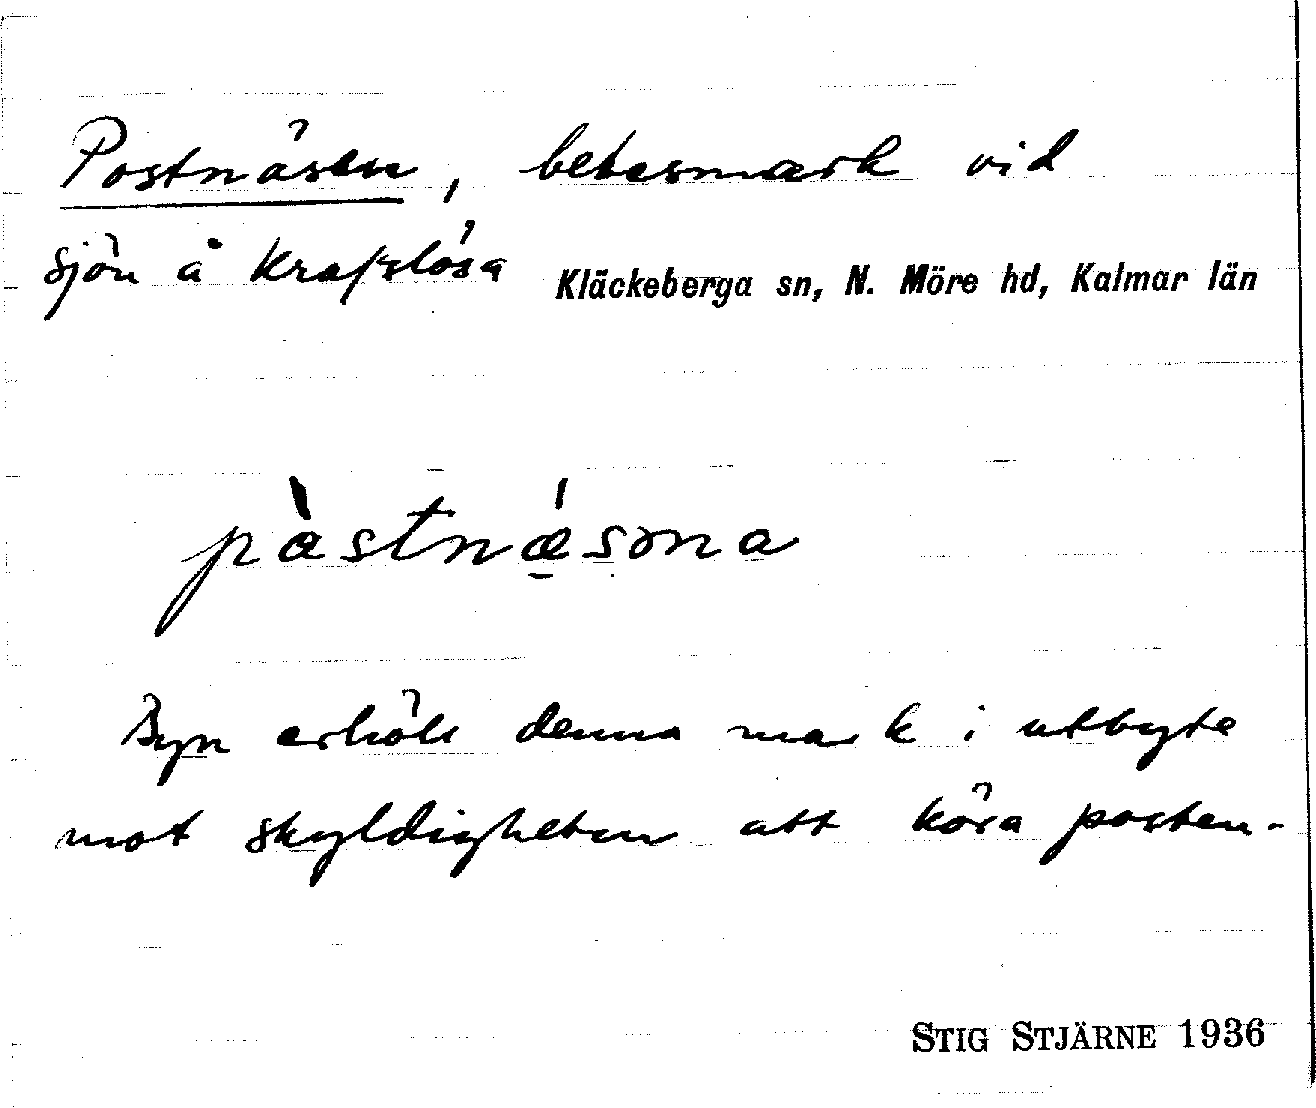 Postnäsen, betesmark vid
sjön å Krafslösa Kläckeberga sn, N. Möre hd, Kalmar län
pàstnǽsəna
Byn erhöll denna mark i utbyte
mot skyldigheten att köra posten.
STIG STJÄRNE 1936